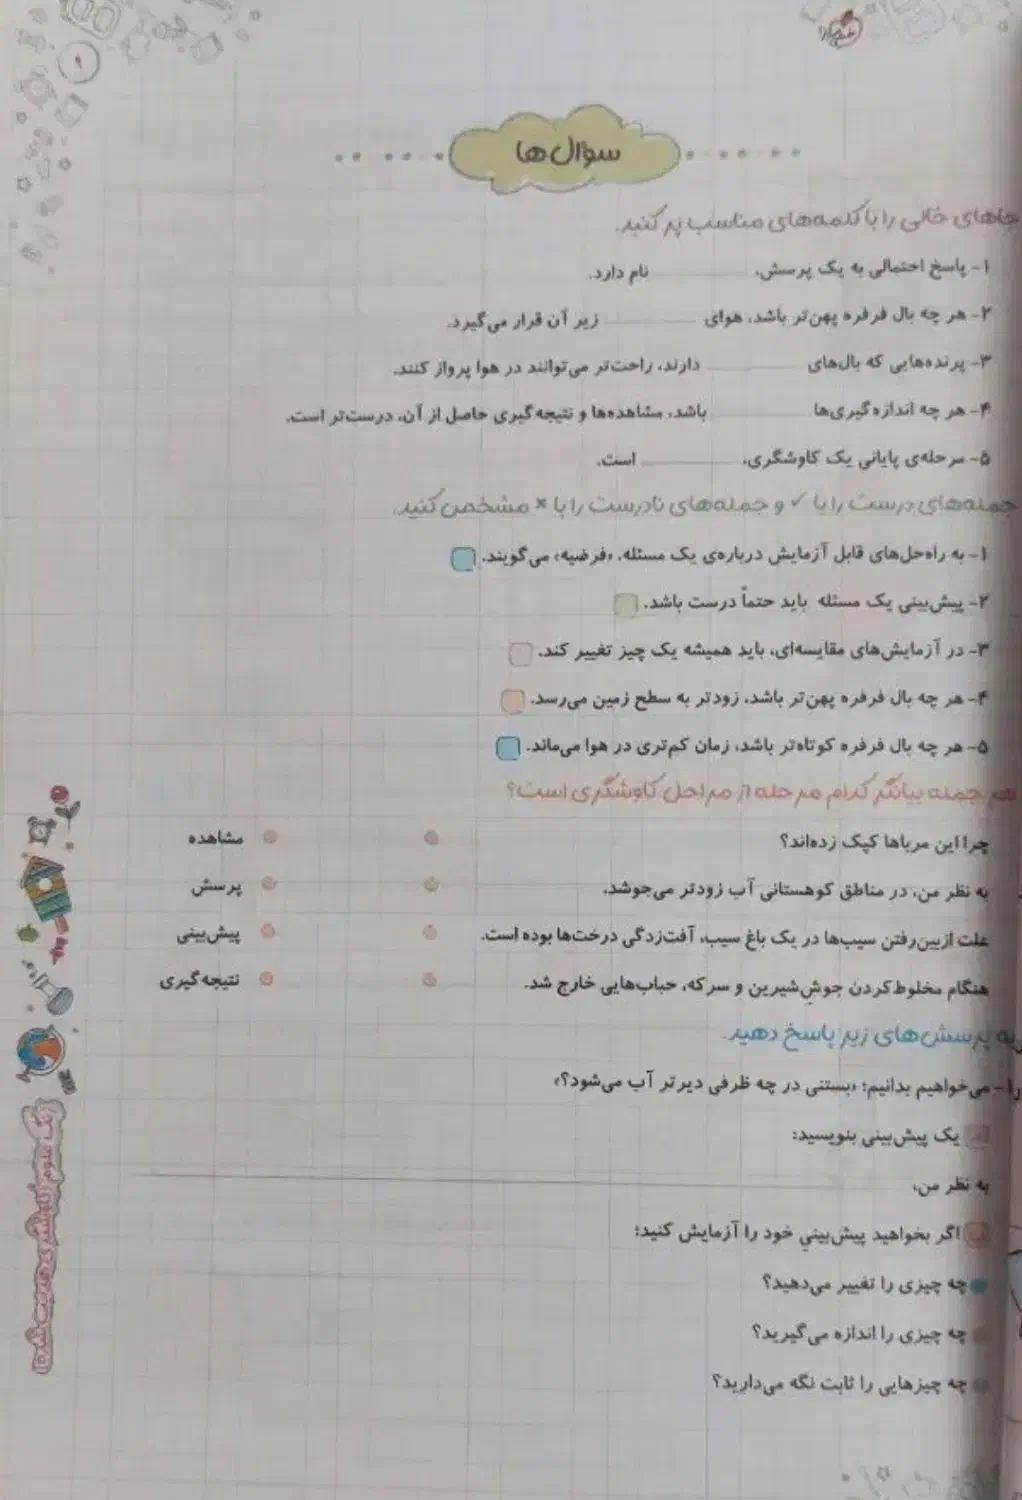 ۹
سؤال ها
جاهای خالی را با کلمه‌های مناسب پر کنید.
۱- پاسخ احتمالی به یک پرسش، ________ نام دارد.
۲- هر چه بال فرفره پهن‌تر باشد، هوای ________ زیر آن قرار می‌گیرد.
۳- پرنده‌هایی که بال‌های ________ دارند، راحت‌تر می‌توانند در هوا پرواز کنند.
۴- هر چه اندازه‌گیری‌ها ________ باشد، مشاهده‌ها و نتیجه‌گیری حاصل از آن، درست‌تر است.
۵- مرحله‌ی پایانی یک کاوشگری، ________ است.
جمله‌های درست را با ✓ و جمله‌های نادرست را با × مشخص کنید.
۱- به راه‌حل‌های قابل آزمایش درباره‌ی یک مسئله، «فرضیه» می‌گویند.
۲- پیش‌بینی یک مسئله باید حتماً درست باشد.
۳- در آزمایش‌های مقایسه‌ای، باید همیشه یک چیز تغییر کند.
۴- هر چه بال فرفره پهن‌تر باشد، زودتر به سطح زمین می‌رسد.
۵- هر چه بال فرفره کوتاه‌تر باشد، زمان کم‌تری در هوا می‌ماند.
هر جمله بیانگر کدام مرحله از مراحل کاوشگری است؟
چرا این مرباها کپک زده‌اند؟ مشاهده
به نظر من، در مناطق کوهستانی آب زودتر می‌جوشد. پرسش
علت ازبین‌رفتن سیب‌ها در یک باغ سیب، آفت‌زدگی درخت‌ها بوده است. پیش‌بینی
هنگام مخلوط‌کردن جوش‌شیرین و سرکه، حباب‌هایی خارج شد. نتیجه‌گیری
به پرسش‌های زیر پاسخ دهید.
۱- می‌خواهیم بدانیم: «بستنی در چه ظرفی دیرتر آب می‌شود؟»
یک پیش‌بینی بنویسید:
به نظر من،
اگر بخواهید پیش‌بینیِ خود را آزمایش کنید:
چه چیزی را تغییر می‌دهید؟
چه چیزی را اندازه می‌گیرید؟
چه چیزهایی را ثابت نگه می‌دارید؟
زنگ علوم